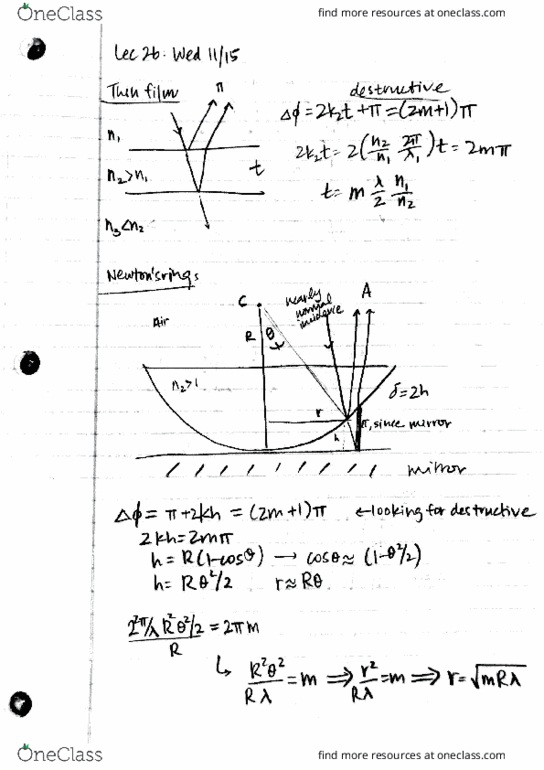 OneClass find more resources at oneclass.com
Lec 26. Wed 11/15
Thin film
π
destructive
Δφ = 2k₂t + π = (2m+1)π
n₁
2k₂t = 2(n₂/n₁ 2π/λ₁)t = 2mπ
n₂>n₁
t
t = m λ/2 n₁/n₂
n₃<n₂
Newton's rings
C
nearly normal incidence
A
Air
R
θ
n₂>1
δ=2h
r
π, since mirror
h
mirror
Δφ = π+2kh = (2m+1)π ← looking for destructive
2kh=2mπ
h = R(1-cosθ) → cosθ≈ (1-θ²/2)
h = Rθ²/2 r≈Rθ
= 2πm
R²θ²/Rλ = m ⇒ r²/Rλ = m ⇒ r = √mRλ
OneClass find more resources at oneclass.com